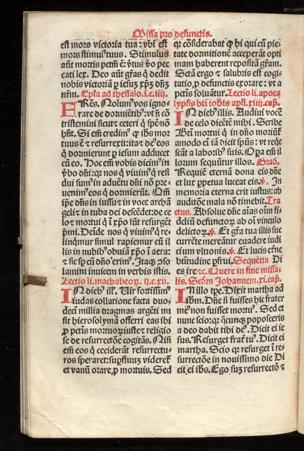 Missa pro defunctis.
est mors victoria tua: vbi est
mors stimulus tuus. Stimulus
aut mortis peccm est: virtus vo pec
cati lex. Deo aut gras q dedit
nobis victoria p iesum xpm dnm
nrm. Epla ad thessalo. i. c. iiij.
Frēs. Nolumus vos igno
rare de dormientibus: vt no co
tristemini sicut ceteri q spem no
hnt. Si em credim q ihs mor
tuus est & resurrexit: ita & deus eos
q dormierunt p iesum adducet
cu eo. Hoc em vobis dicim in
verbo dni: qr nos q viuim q resi
dui sum in aduetu dni no pre
ueniem eos q dormierut. Qm
ipse dns in iussu & in voce archa
geli & in tuba dei descedet de ce
lo: & mortui q in xpo sut resurget
pmi. Deinde nos q viuim q re
linqmur simul rapiemur cu il
lis in nubibus obuia xpo i aera:
& sic sp cu dno erim. Itaq conso
lamini inuicem in verbis istis.
Lectio ii. machabeorum.
In dieb ill. Vir fortissim
iudas collatione facta duo
deci millia dragmas argeti mi
sit hierosolyma offerri eas ibi
p pctis mortuorum iuste & religio
se de resurrectoe cogitas. Nisi
em eos q ceciderat resurrectu
ros speraret: supfluum videret
et vanu orare p mortuis. Sed
qr cosiderabat q hi qui cu pie
tate dormitione acceperat opti
mam haberent reposita gram.
Scta ergo & salubris est cogi
tatio p defunctis exorare: vt a
petis soluant. Lectio li. apoca
lypsis bti iohis apli. xiiij. cap.
In dieb ill. Audiui voce
de celo dicete mihi. Scribe
Bti mortui q in dno moriut
amodo ei ia dicit sps: vt reqe
scat a laborib suis. Opa em il
lorum sequutur illos. Grad.
Requie eterna dona eis dne
et lux ppetua luceat eis. In
memoria eterna erit iustus: ab
auditoe mala no timebit. Tra
ctus. Absolue dne aias om fi
deliu defunctorum ab oi vinculo
delictorum. Et gra tua illis suc
currete mereatur euadere iudi
cium vltionis. Et lucis eterne
btitudine pfrui. Sequetia Di
es ire &c. Quere in fine missa
lis. Scdm Johannem. xi. cap.
In illo tpe. Dixit martha ad
ihm. Dne si fuisses hic frater
meus non fuisset mortuus. Sed et
nunc scio: qr quecuq poposceris
a deo dabit tibi deus. Dicit ei ie
sus. Resurget frater tuus. Dicit ei
martha. Scio qr resurget i re
surrectoe in nouissimo die Di
cit ei ihs. Ego sum resurrectio &